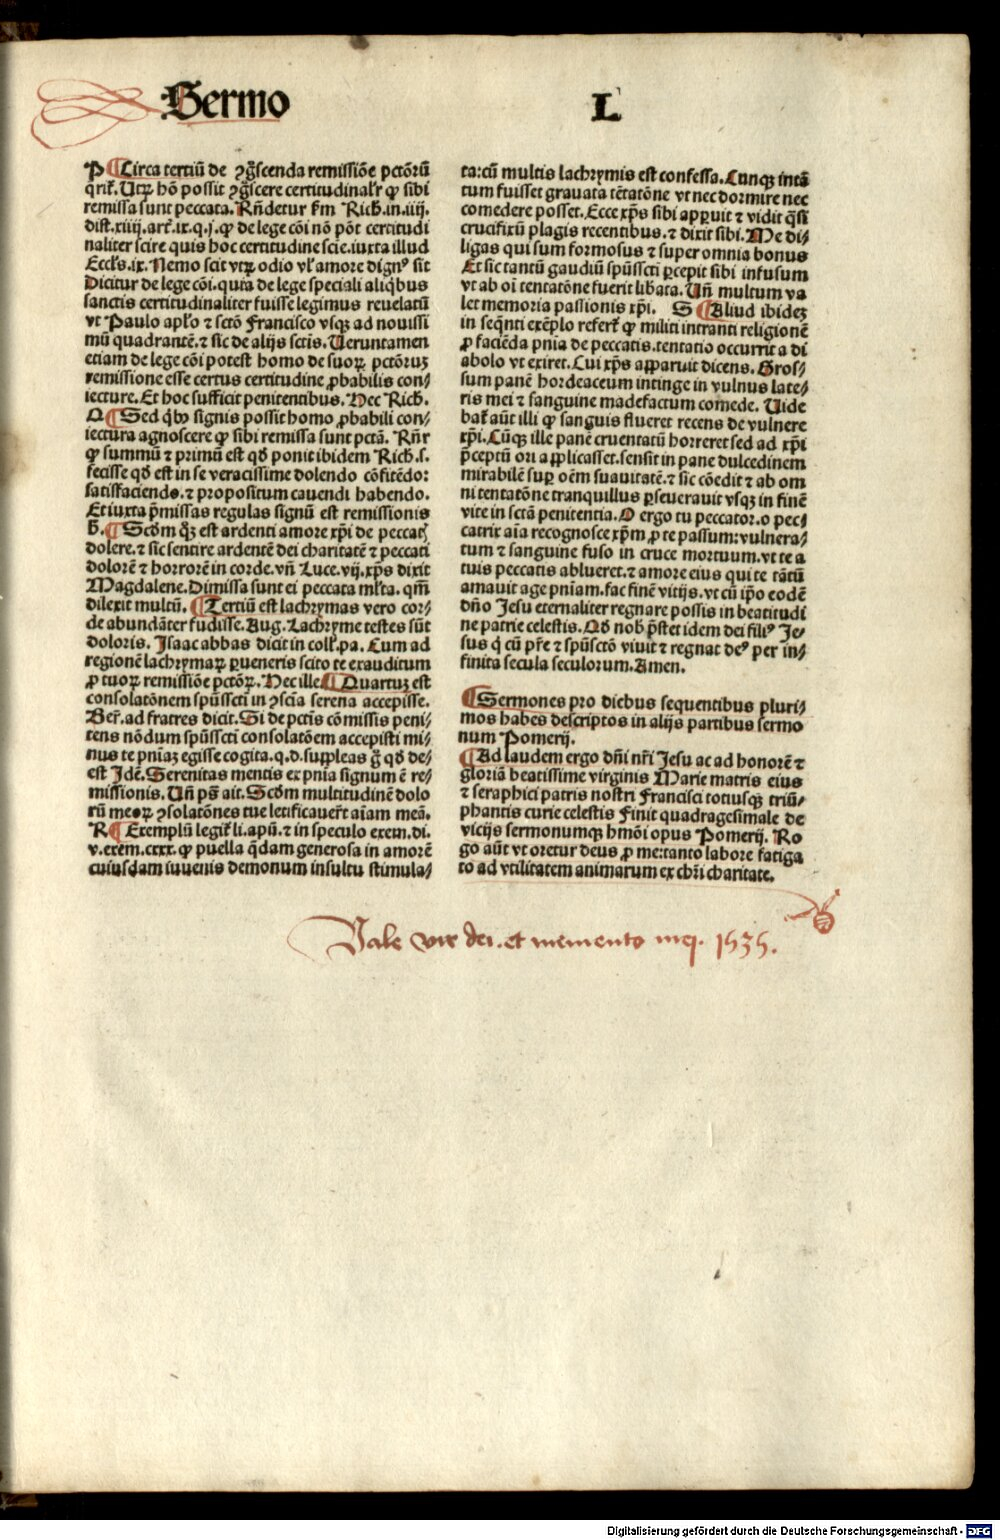 Sermo L
P ¶ Circa tertiū de ꝯg̃scenda remissiõe pctõrū
q̃rit᷑. Utꝝ hõ possit ꝯg̃scere certitudinalr̃ ꝙ sibi
remissa sunt peccata. Rñdetur ẜm Rich. in .iiij.
dist. xiiij. art᷑. ix. q. j. ꝙ de lege cõi nõ põt certitudi
naliter scire quis hoc certitudine scie. iuxta illud
Eccl̃s. ix. Nemo scit vtꝝ odio vl̃ amore dignꝰ sit
Dicitur de lege cõi. quia de lege speciali aliq̃bus
sanctis certitudinaliter fuisse legimus reuelatū
vt Paulo apl̃o ⁊ sctõ Francisco vsqꝫ ad nouissi
mū quadrantē. ⁊ sic de alijs sctis. Ueruntamen
etiam de lege cõi potest homo de suoꝝ pctõruꝫ
remissione esse certus certitudine ꝓbabilis con/
iecture. Et hoc sufficit penitentibus. Hec Rich.
Q ¶ Sed qb̃ꝰ signis possit homo ꝓbabili con/
iectura agnoscere ꝙ sibi remissa sunt pctã. Rñr
ꝙ summū ⁊ primū est qđ ponit ibidem Rich. s.
fecisse qđ est in se veracissime dolendo cõfitēdo:
satisfaciendo. ⁊ propositum cauendi habendo.
Et iuxta p̃missas regulas signū est remissionis
ħ. ¶ Scđm qꝫ est ardenti amore xp̃i de peccat̃
dolere. ⁊ sic sentire ardentē dei charitatē ⁊ peccati
dolorē ⁊ horrorē in corde. vñ Luce. vij. xp̃s dixit
Magdalene. Dimissa sunt ei peccata ml̃ta. qm̃
dilexit multū. ¶ Tertiū est lachrymas vero cor/
de abundāter fudisse. Aug. Lachryme testes sūt
doloris. Isaac abbas dicit in coll᷑. pa. Cum ad
regionē lachrymaꝝ ꝑueneris scito te exauditum
ꝓ tuoꝝ remissiõe pctõꝝ. Hec ille. ¶ Quartuꝫ est
consolatõnem spũsscti in ꝯscĩa serena accepisse.
Ber̃. ad fratres dicit. Si de pctis cõmissis peni/
tens nõdum spũsscti consolatõem accepisti mi/
nus te pniaꝫ egisse cogita. q. d. suppleas g̃ qđ de/
est Idē. Serenitas mentis ex pnia signum ē re/
missionis. Uñ pš ait. Scđm multitudinē dolo
rū meoꝝ ꝯsolatõnes tue letificauer̃t aĩam meã.
R ¶ Exemplū legit᷑ li. apũ. ⁊ in speculo exem. di.
v. exem. cxxx. ꝙ puella q̃dam generosa in amorē
cuiusdam iuuenis demonum insultu stimula/
ta: cū multis lachrymis est confessa. Cunqꝫ intã
tum fuisset grauata tētatõne vt nec dormire nec
comedere posset. Ecce xp̃s sibi apꝑuit ⁊ vidit q̃si
crucifixū plagis recentibus. ⁊ dixit sibi. Me di/
ligas qui sum formosus ⁊ super omnia bonus
Et sic tantū gaudiū spũsscti ꝑcepit sibi infusum
vt ab oĩ tentatõne fuerit lib̃ata. Uñ multum va
let memoria passionis xp̃i. S ¶ Aliud ibideꝫ
in seq̃nti exēplo refert᷑ ꝙ militi intranti religionē
ꝓ faciēda pnia de peccatis. tentatio occurrit a di
abolo vt exiret. Cui xp̃s apparuit dicens. Gros/
sum panē hordeaceum intinge in vulnus late/
ris mei ⁊ sanguine madefactum comede. Uide
bat᷑ aũt illi ꝙ sanguis flueret recens de vulnere
xp̃i. Cūqꝫ ille panē cruentatū horreret sed ad xp̃i
p̃ceptū ori applicasset. sensit in pane dulcedinem
mirabilē suꝑ oēm suauitatē. ⁊ sic cõedit ⁊ ab om
ni tentatõne tranquillus ꝑseuerauit vsqꝫ in finē
vite in sctã penitentia. O ergo tu peccator. o pec/
catrix aĩa recognosce xp̃m ꝓ te passum: vulnera/
tum ⁊ sanguine fuso in cruce mortuum. vt te a
tuis peccatis ablueret. ⁊ amore eius qui te tãtū
amauit age pniam. fac finē vitijs. vt cū ip̃o eodē
dño Jesu eternaliter regnare possis in beatitudi
ne patrie celestis. Qđ nob̃ p̃stet idem dei filiꝰ Je/
sus q̃ cū pr̃e ⁊ spũsctõ viuit ⁊ regnat deꝰ per in/
finita secula seculorum. Amen.
¶ Sermones pro diebus sequentibus pluri/
mos habes descriptos in alijs partibus sermo
num Pomerij.
¶ Ad laudem ergo dñi nr̃i Jesu ac ad honorē ⁊
gloriã beatissime virginis Marie matris eius
⁊ seraphici patris nostri Francisci totiusqꝫ triū/
phantis curie celestis Finit quadragesimale de
vicijs sermonumqꝫ hmõi opus Pomerij. Ro
go aũt vt oretur deus ꝓ me: tanto labore fatiga
to ad vtilitatem animarum ex chr̃i charitate.
Vale vir dei. et memento mej. 1535.
Digitalisierung gefördert durch die Deutsche Forschungsgemeinschaft - DFG